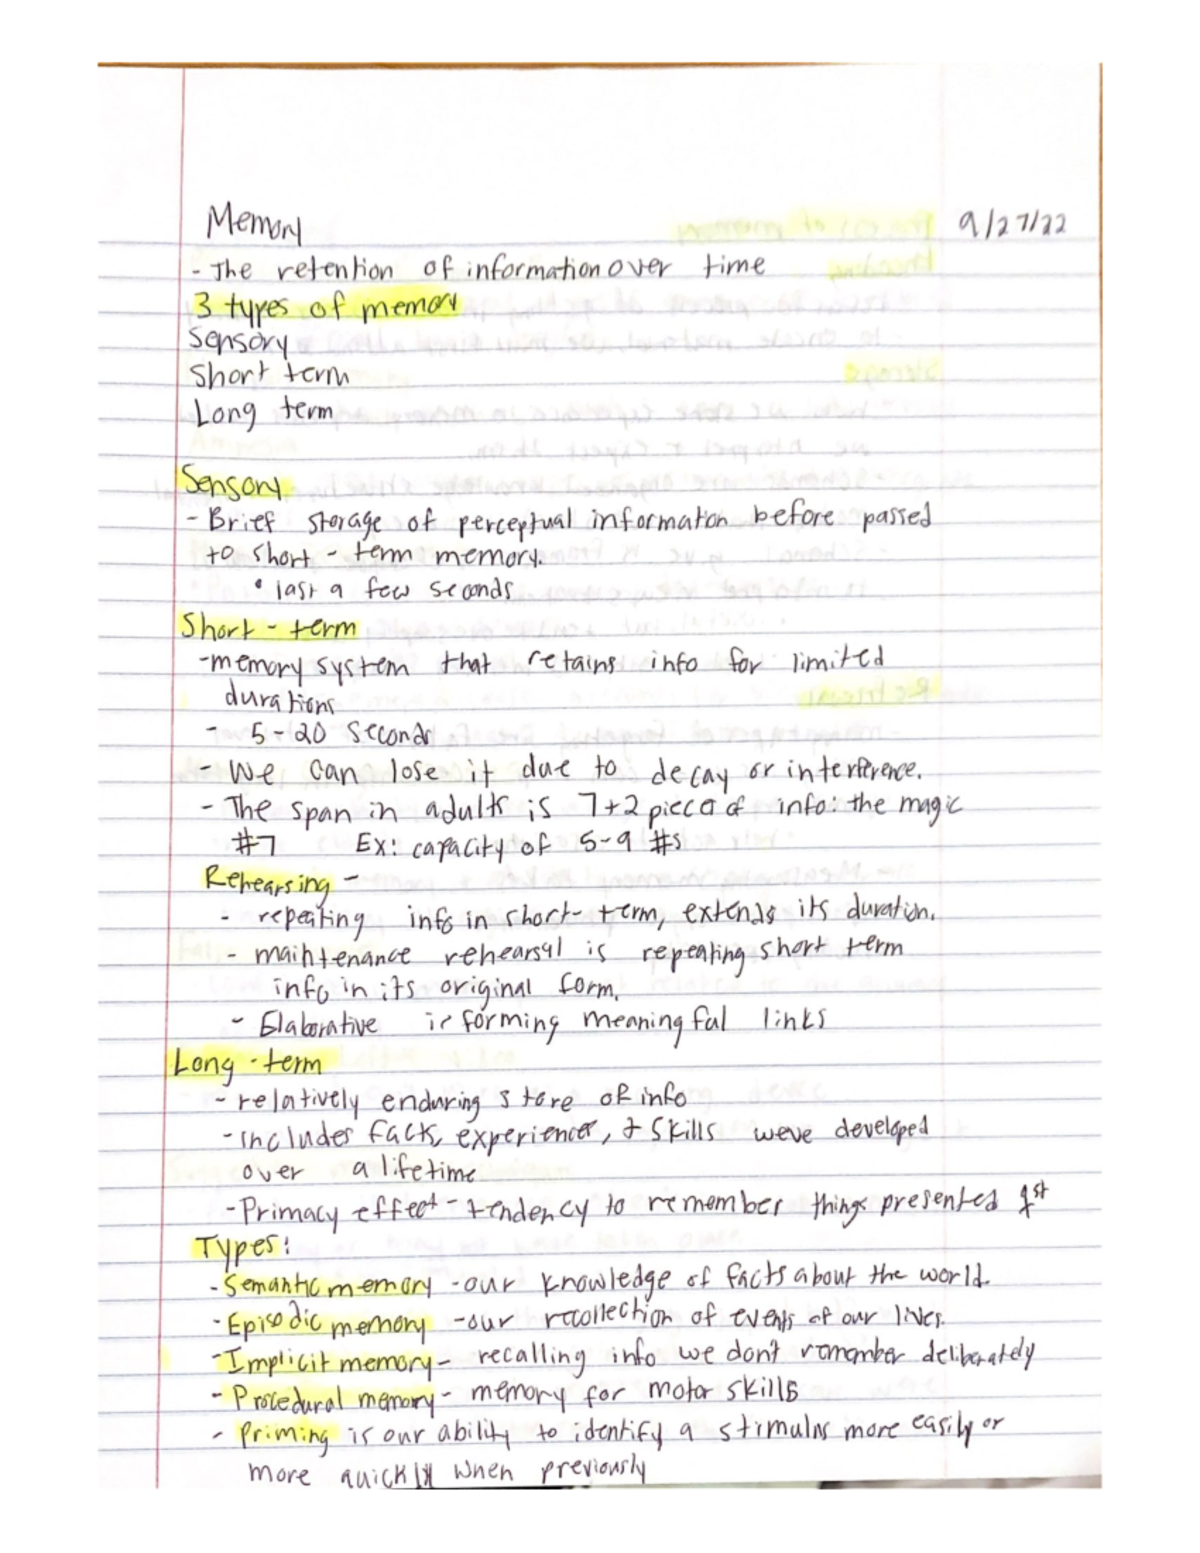 Memory 9/27/22
- The retention of information over time
3 types of memory
Sensory
Short term
Long term
Sensory
- Brief storage of perceptual information before passed
to short - term memory.
• last a few seconds
Short - term
- memory system that retains info for limited
durations
- 5-20 seconds
- We can lose it due to decay or interference.
- The span in adults is 7+2 piece of info: the magic
#7 Ex: capacity of 5-9 #s
Rehearsing -
- repeating info in short-term, extends its duration.
- maintenance rehearsal is repeating short term
info in its original form.
- Elaborative is forming meaningful links
Long - term
- relatively enduring store of info
- includes facts, experiences, & skills weve developed
over a lifetime
- Primacy effect - tendency to remember things presented 1st
Types:
- Semantic memory - our knowledge of facts about the world.
- Episodic memory - our recollection of events of our lives.
- Implicit memory - recalling info we don't remember deliberately
- Procedural memory - memory for motor skills
- Priming is our ability to identify a stimulus more easily or
more quickly when previously